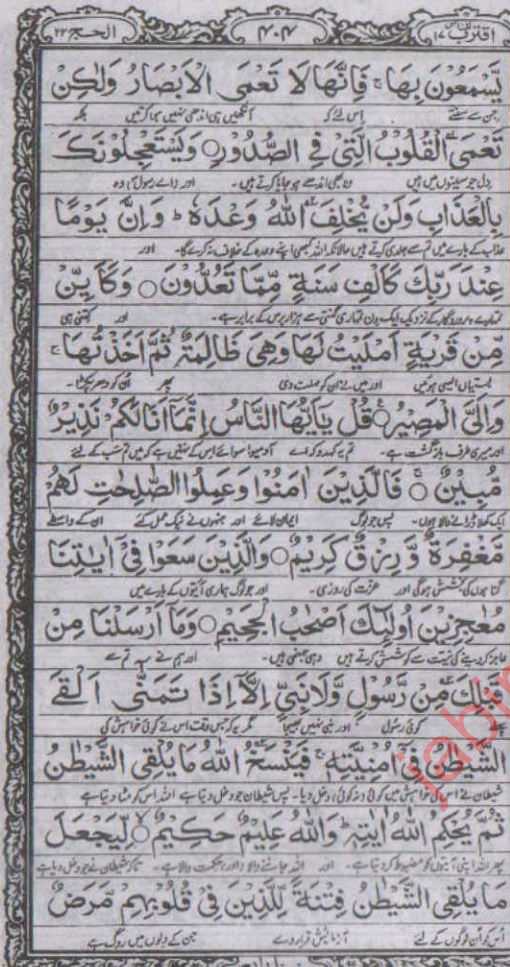 اقترب للناس ۱۷ ۴۰۴ الحج ۲۲
يَّسْمَعُوْنَ بِهَا ۚ فَاِنَّهَا لَا تَعْمَى الْاَبْصَارُ وَلٰكِنْ
جن سے سنتے اس لئے کہ آنکھیں ہی اندھی نہیں ہوا کرتیں بلکہ
تَعْمَى الْقُلُوْبُ الَّتِيْ فِى الصُّدُوْرِ ○ وَيَسْتَعْجِلُوْنَكَ
دل جو سینوں میں ہیں وہ بھی اندھے ہو جایا کرتے ہیں۔ اور (اے رسول) وہ
بِالْعَذَابِ وَلَنْ يُّخْلِفَ اللّٰهُ وَعْدَهٗ ؕ وَاِنَّ يَوْمًا
عذاب کے بارے میں تم سے جلدی کرتے ہیں حالانکہ اللہ کبھی اپنے وعدہ کے خلاف نہ کرے گا۔ اور
عِنْدَ رَبِّكَ كَاَلْفِ سَنَةٍ مِّمَّا تَعُدُّوْنَ ○ وَكَاَيِّنْ
تمہارے پروردگار کے نزدیک ایک دن تمہاری گنتی سے ہزار برس کے برابر ہے۔ اور کتنی ہی
مِّنْ قَرْيَةٍ اَمْلَيْتُ لَهَا وَهِىَ ظَالِمَةٌ ثُمَّ اَخَذْتُهَا ۚ
بستیاں ایسی ہوئیں اور میں نے ان کو مہلت دی پھر ان کو دھر پکڑا۔
وَاِلَىَّ الْمَصِيْرُ ○ قُلْ يٰۤاَيُّهَا النَّاسُ اِنَّمَاۤ اَنَا لَكُمْ نَذِيْرٌ
اور میری طرف بازگشت ہے۔ تم یہ کہدو کہ اے آدمیو! سوائے اس کے نہیں ہے کہ میں تم سب کے لئے
مُّبِيْنٌ ○ فَالَّذِيْنَ اٰمَنُوْا وَعَمِلُوا الصّٰلِحٰتِ لَهُمْ
ایک کھلا ڈرانے والا ہوں۔ پس جو لوگ ایمان لائے اور جنہوں نے نیک عمل کئے ان کے واسطے
مَّغْفِرَةٌ وَّرِزْقٌ كَرِيْمٌ ○ وَالَّذِيْنَ سَعَوْا فِىْۤ اٰيٰتِنَا
گناہوں کی بخشش ہوگی اور عزت کی روزی۔ اور جو لوگ ہماری آیتوں کے بارے میں
مُعٰجِزِيْنَ اُولٰٓئِكَ اَصْحٰبُ الْجَحِيْمِ ○ وَمَاۤ اَرْسَلْنَا مِنْ
عاجز کر دینے کی نیت سے کوشش کرتے ہیں وہی جہنمی ہیں۔ اور ہم نے تم سے
قَبْلِكَ مِنْ رَّسُوْلٍ وَّلَا نَبِىٍّ اِلَّاۤ اِذَا تَمَنّٰىۤ اَلْقَى
پہلے کوئی رسول اور نبی نہیں بھیجا مگر یہ کہ جس وقت اس نے کوئی خواہش کی
الشَّيْطٰنُ فِىْۤ اُمْنِيَّتِهٖ ۚ فَيَنْسَخُ اللّٰهُ مَا يُلْقِى الشَّيْطٰنُ
شیطان نے اس کی خواہش میں کوئی نہ کوئی دخل دیا۔ پس شیطان جو دخل دیتا ہے اللہ اس کو مٹا دیتا ہے
ثُمَّ يُحْكِمُ اللّٰهُ اٰيٰتِهٖ ؕ وَاللّٰهُ عَلِيْمٌ حَكِيْمٌ ○ لِّيَجْعَلَ
پھر اللہ اپنی آیتوں کو مضبوط کر دیتا ہے۔ اور اللہ جاننے والا (اور) حکمت والا ہے۔ تاکہ شیطان نے جو دخل دیا ہے
مَا يُلْقِى الشَّيْطٰنُ فِتْنَةً لِّلَّذِيْنَ فِىْ قُلُوْبِهِمْ مَّرَضٌ
اس کو ان لوگوں کے لئے آزمائش قرار دے جن کے دلوں میں روگ ہے